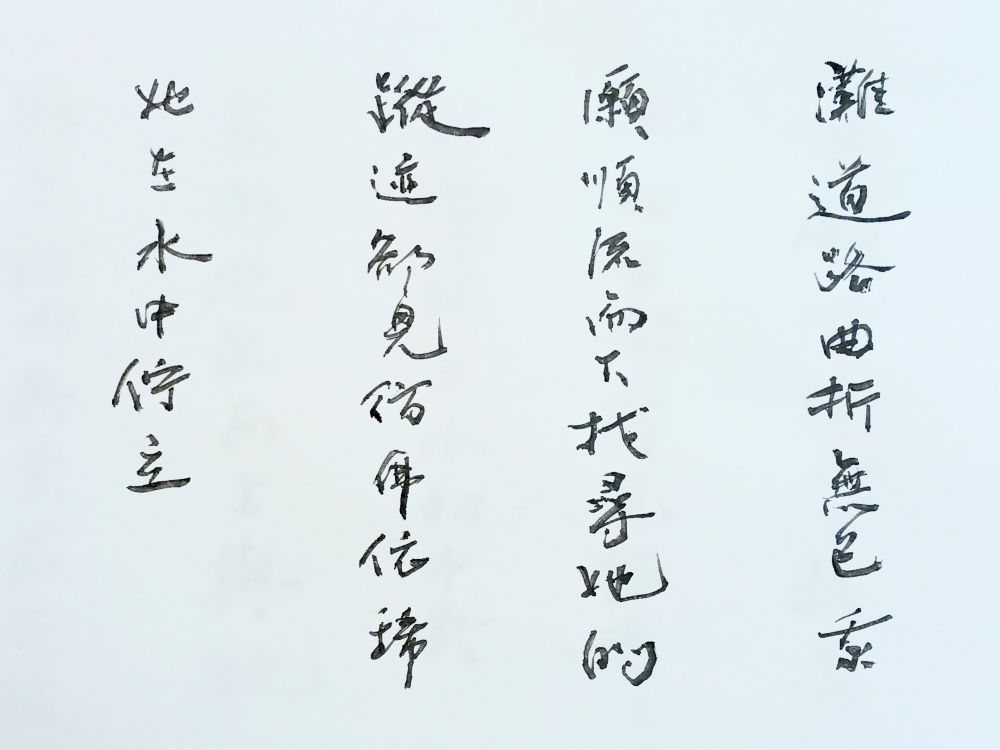 灘道路曲折無已我
願順流而下找尋她的
蹤迹卻見彷彿依稀
她在水中佇立